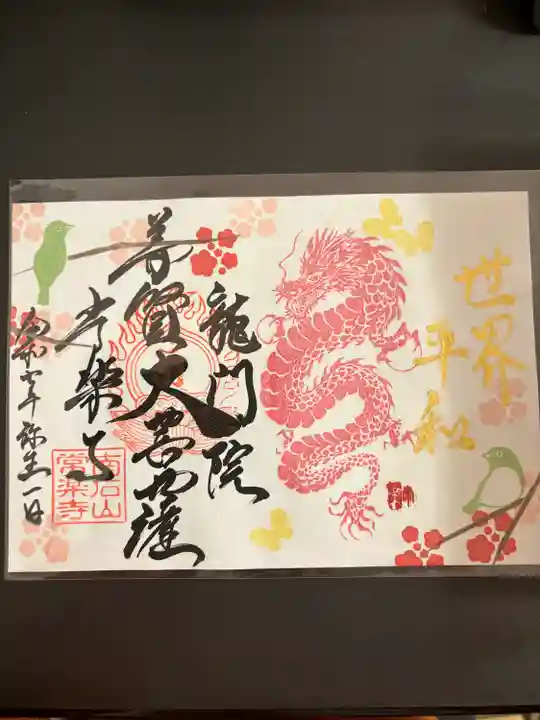 世界
平和
龍門院
普賢大菩薩
常楽寺
南石山
常楽寺
令和六年弥生一日